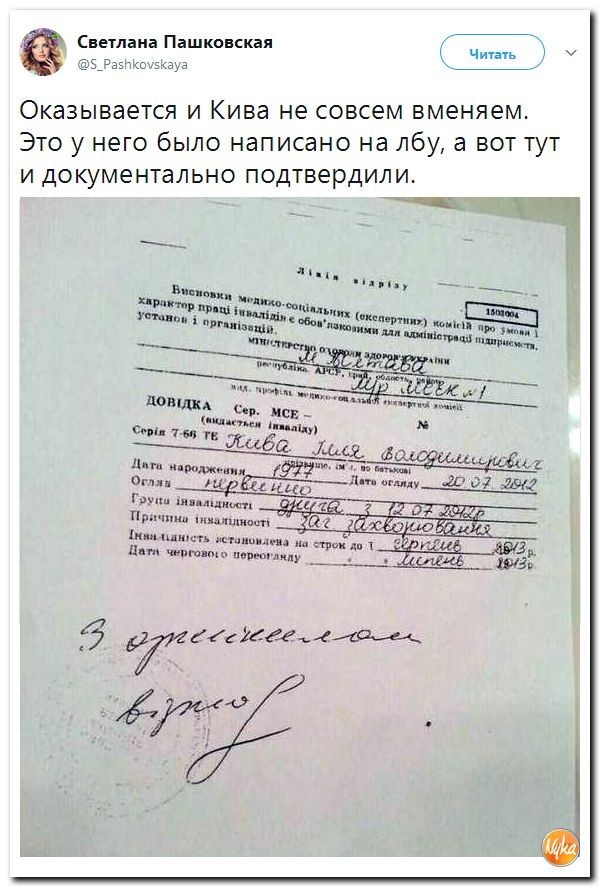 Светлана Пашковская
@S_Pashkovskaya
Читать
Оказывается и Кива не совсем вменяем.
Это у него было написано на лбу, а вот тут
и документально подтвердили.
Лінія відрізу
1503004
Висновки медико-соціальних (експертних) комісій про умови і
характер праці інвалідів є обов'язковими для адміністрації підприємств,
установ і організацій.
МІНІСТЕРСТВО ОХОРОНИ ЗДОРОВ'Я УКРАЇНИ
м. Полтава
республіка, АРСР, край, область, район
МСЕК №1
вид, профіль медико-соціальної експертної комісії
ДОВІДКА Сер. МСЕ – №
(видається інваліду)
Серія 7-66 ТЕ Кива Ілля Володимирович
прізвище, ім'я, по батькові
Дата народження 1977 Дата огляду 20.07.2012
Огляд первинно
Група інвалідності друга з 12.07.2012р
Причина інвалідності заг захворювання
Інвалідність встановлена на строк до 1 серпень 2013 р.
Дата чергового переогляду липень 2013 р.
З оригіналом
вірно
Nyka